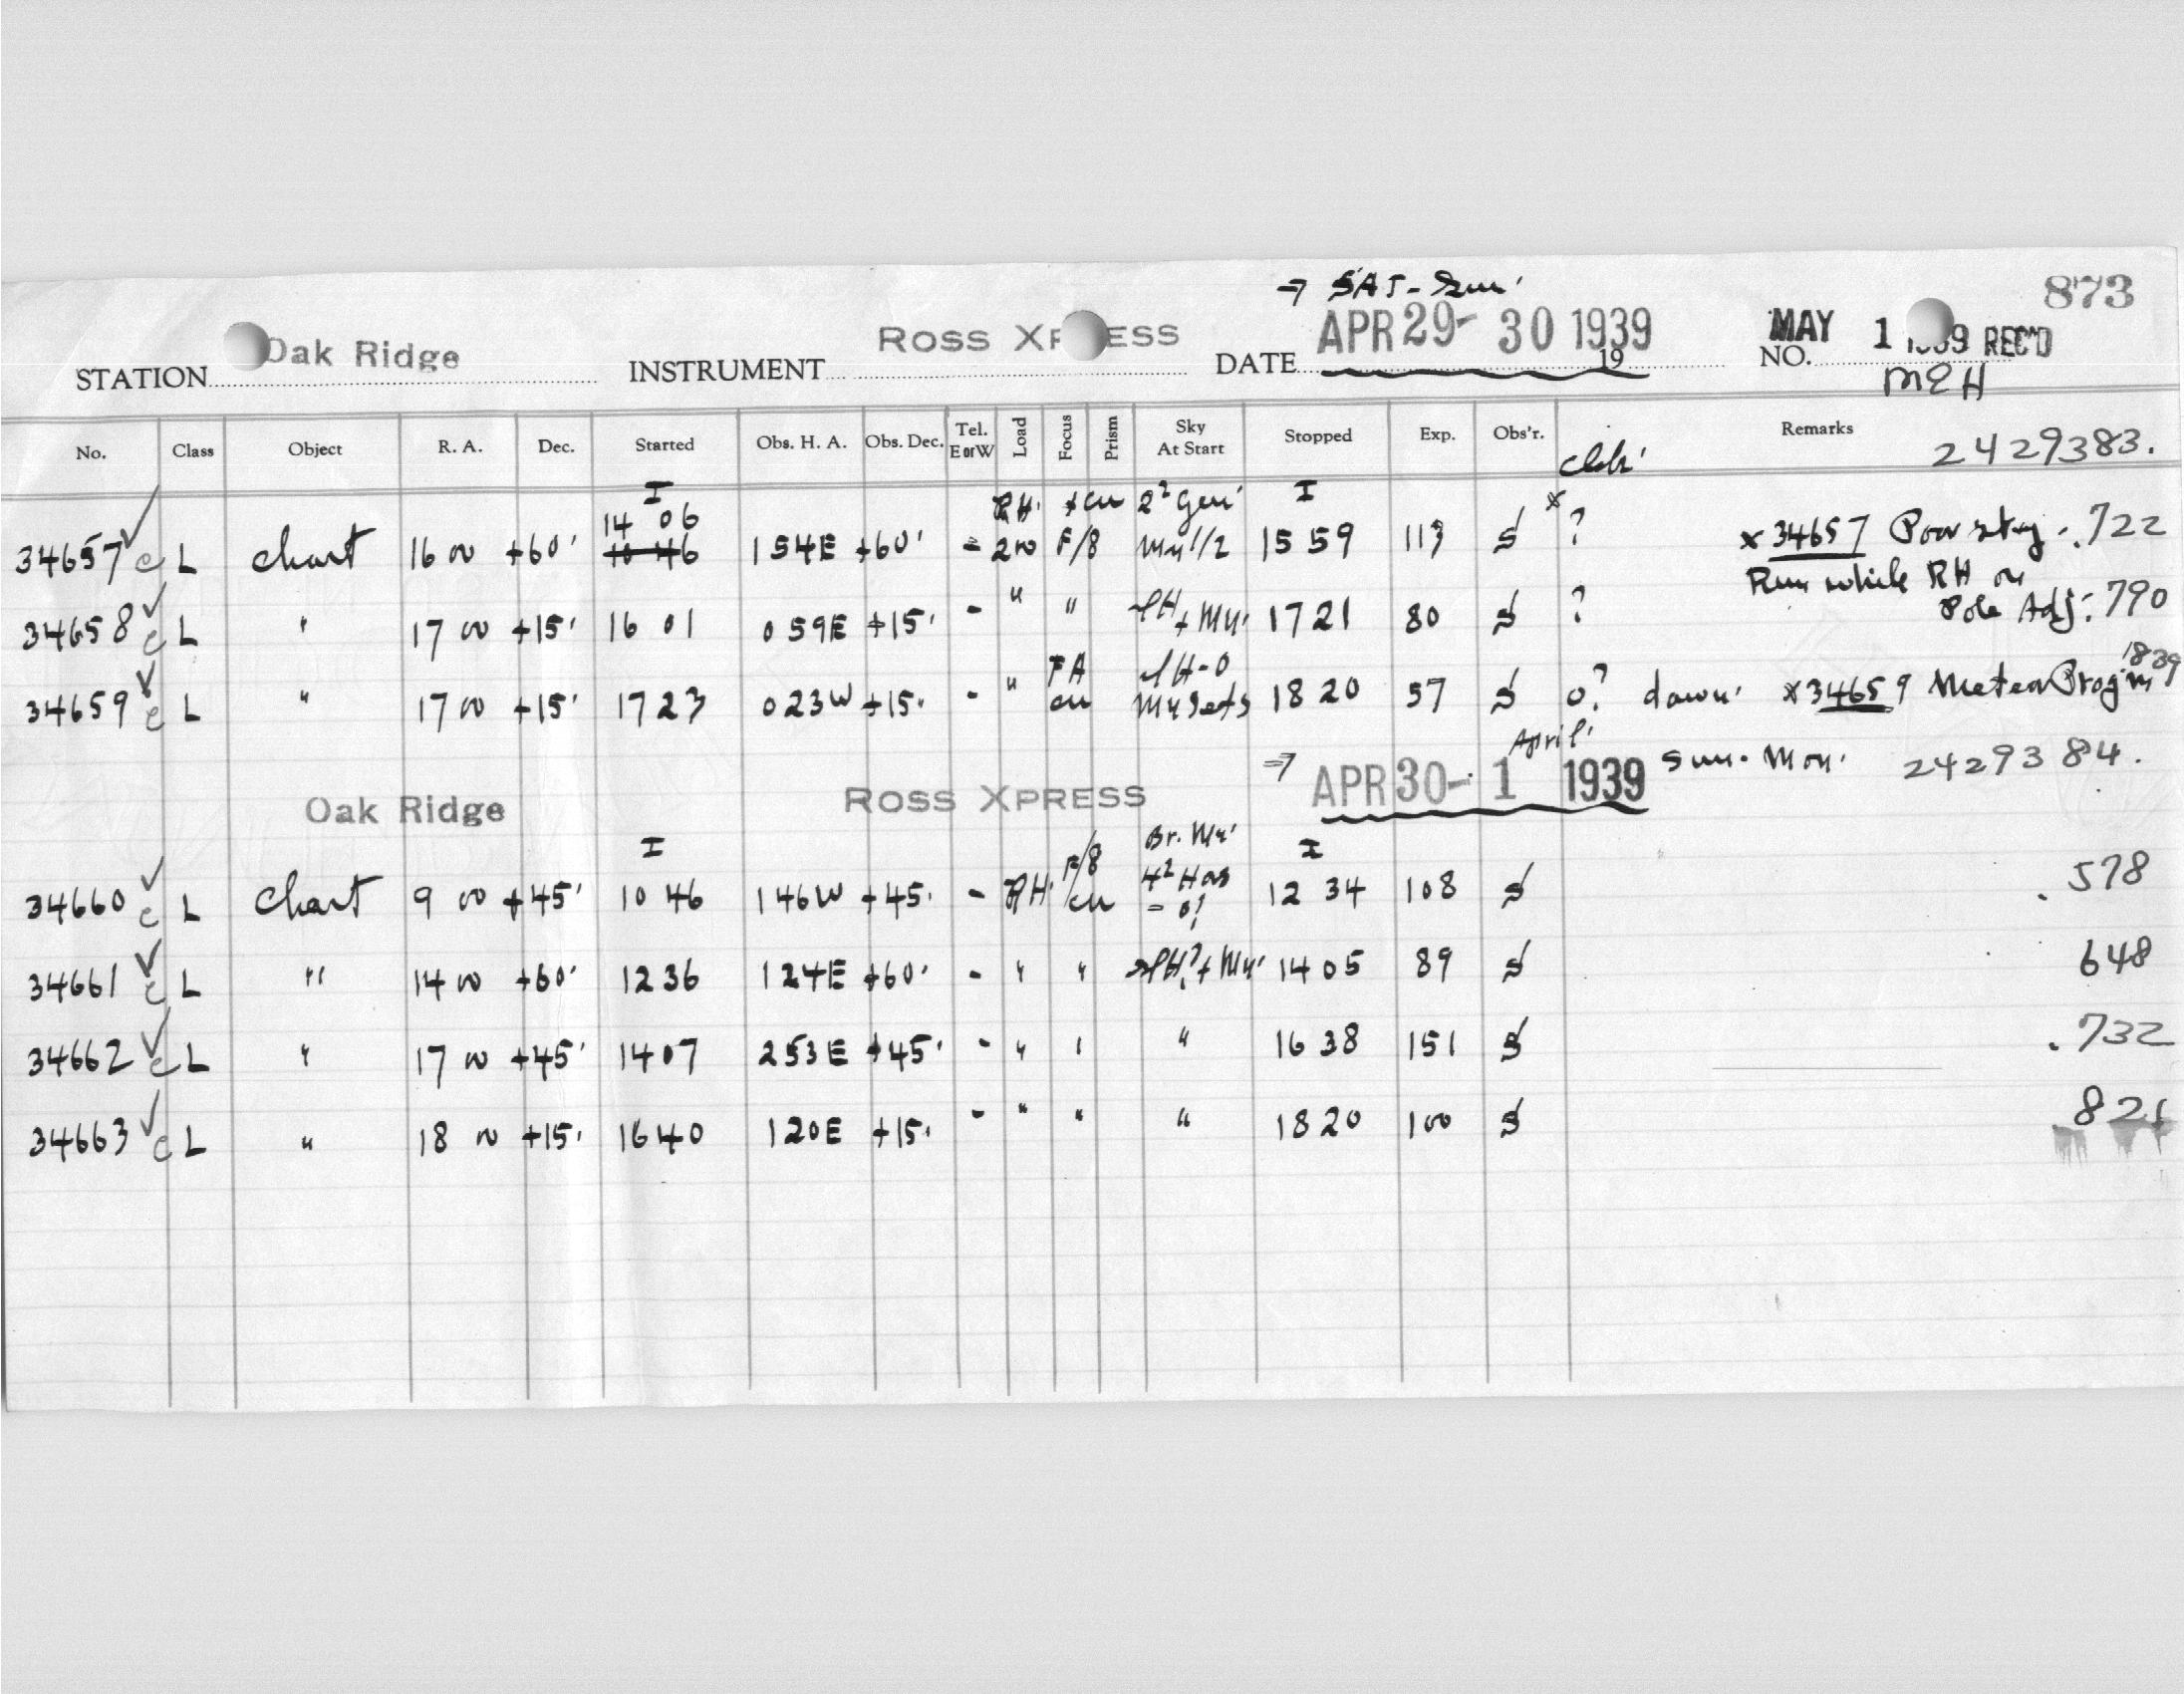 873
→ SAT-Sun.
STATION Oak Ridge INSTRUMENT ROSS XPRESS DATE APR 29-30 1939 19 NO. MAY 1 1939 REC'D
MEH
No. Class Object R. A. Dec. Started Obs. H. A. Obs. Dec. Tel. E or W Load Focus Prism Sky At Start Stopped Exp. Obs'r. Remarks 2429383.
34657 c L Chart 16 00 +60' 14 06 154E +60' - RH 200 F/8 Mn 1/2 I 15 59 113 S x ? x 34657 Poor stg. .722
Run while RH on
34658 c L " 17 00 +15' 16 01 059E +15' - " " + Mn. 17 21 80 S ? Pole Adj. .790
34659 c L " 17 00 +15' 17 23 023W +15' - " Mn sets 18 20 57 S o? dawn. x 34659 Meteor Prog'm 1839
Oak Ridge ROSS XPRESS → APR 30-1 April 1939 Sun. Mon. 2429384.
34660 c L Chart 9 00 +45' I 10 46 146W +45' - RH F/8 Br. Mn. I 12 34 108 S .578
34661 c L " 14 00 +60' 12 36 124E +60' - " " + Mn. 14 05 89 S .648
34662 c L " 17 00 +45' 14 07 253E +45' - " " " 16 38 151 S .732
34663 c L " 18 00 +15' 16 40 120E +15' - " " " 18 20 100 S .821